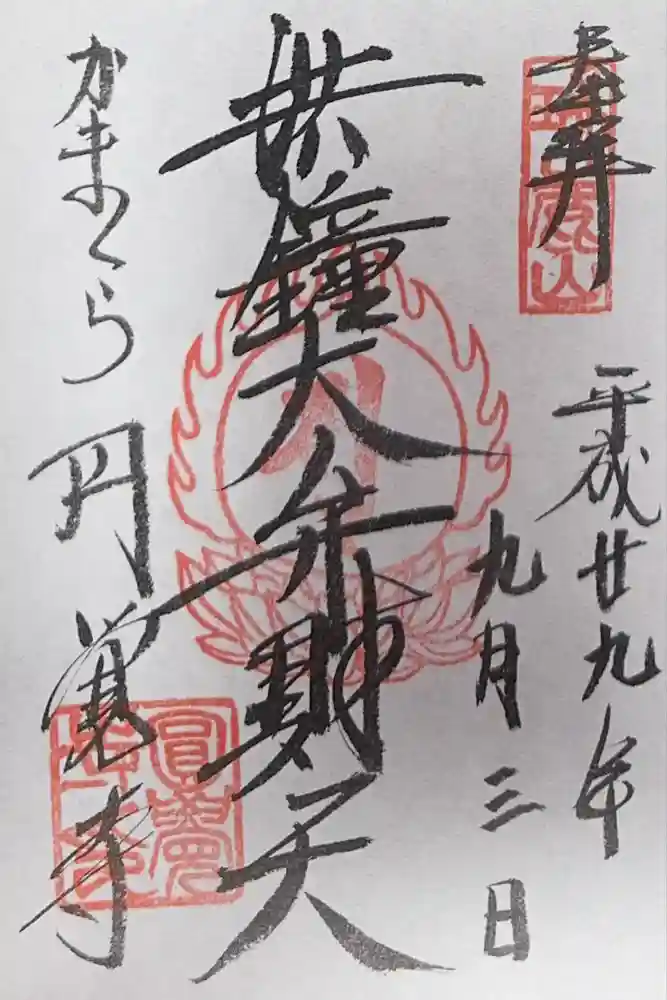 奉拝
平成廿九年
九月三日
洪鐘大弁財天
かまくら 円覚寺
瑞鹿山
圓覺